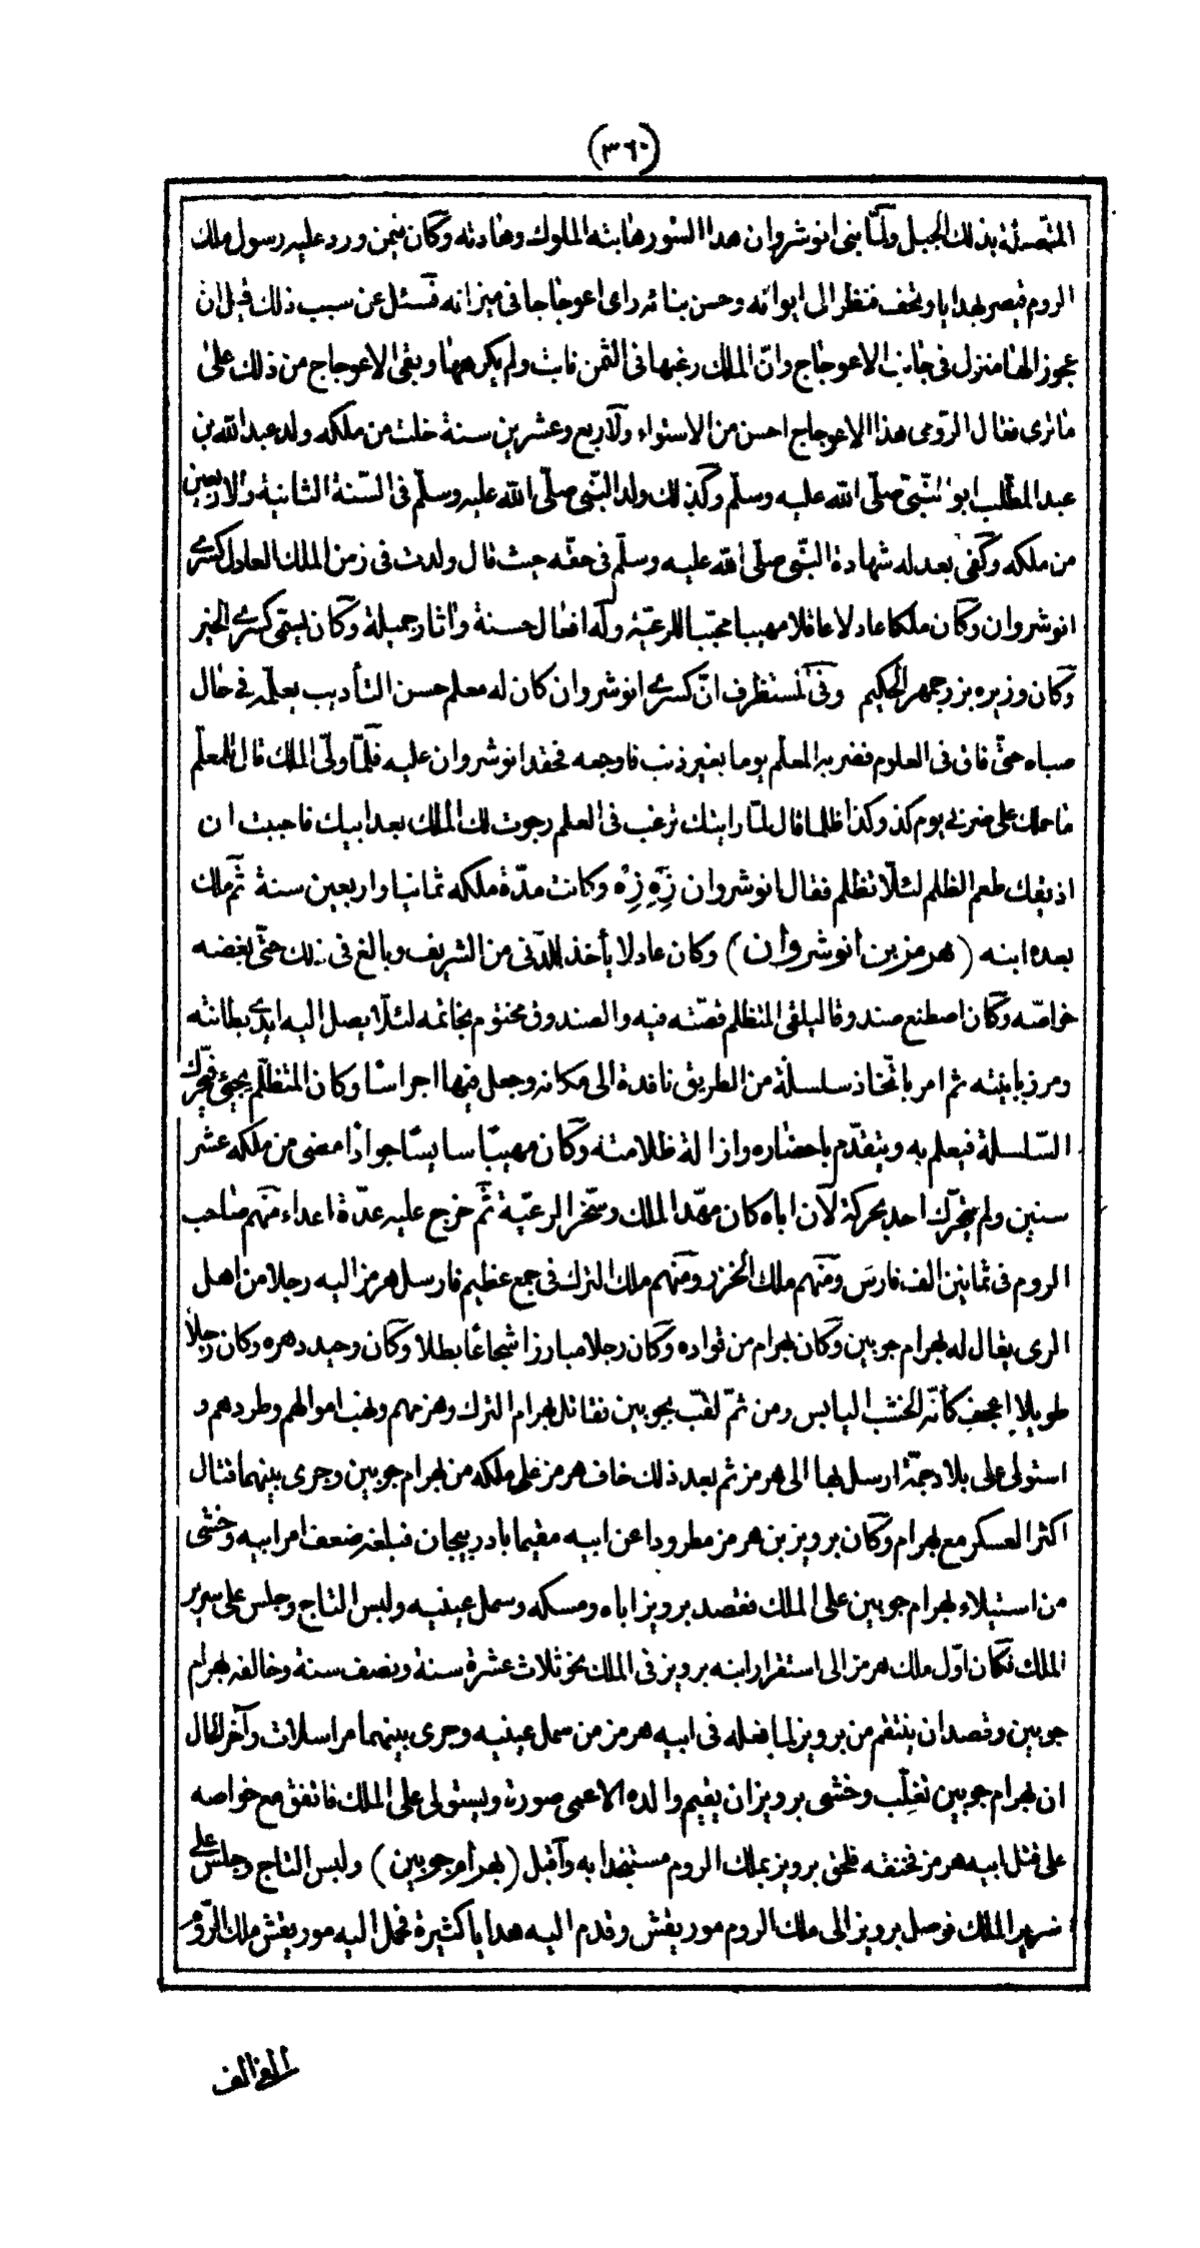 (٣٦٠)
المتصلة بذلك الجبل ولمّا بنى انوشروان هذا السور هابته الملوك وهادنه وكان فيمن ورد عليه رسول ملك
الروم قيصر بهدايا وتحف فنظر الى ايوانه وحسن بنائه راى اعوجاجا فى ميزانه فسئل عن سبب ذلك قيل ان
عجوز الها منزل فى جانب الاعوجاج وانّ الملك رغبها فى الثمن فابت ولم يكرهها وبقى الاعوجاج من ذلك على
ماترى فقال الرومى هذا الاعوجاج احسن من الاستواء ولاربع وعشرين سنة خلت من ملكه ولد عبد الله بن
عبد المطلب ابو النبّى صلّى الله عليه وسلّم وكذلك ولد النبّى صلّى الله عليه وسلّم فى السّنة الثانية والاربعين
من ملكه وكفى بعد له شهادة النبّى صلّى الله عليه وسلّم فى حقّه حيث قال ولدت فى زمن الملك العادل كسرى
انوشروان وكان ملكا عادلا عاقلا مهيبا محبّبا للرعيّة وله افعال حسنة واثار جميلة وكان يسمّى كسرى الخير
وكان وزيره بزرجمهر الحكيم وفى المستظرف انّ كسرى انوشروان كان له معلم حسن التأديب يعلّمه فى حال
صباه حتّى فاق فى العلوم فضربه المعلّم يوما بغير ذنب فاوجعه فحقد انوشروان عليه فلمّا ولّى الملك قال للمعلّم
ماحملك على ضربى يوم كذ وكذا ظلما قال لمّا رايتك ترغب فى العلم رجوت لك الملك بعد ابيك فاحببت ان
اذيقك طعم الظلم لئلّا تظلم فقال انوشروان زِه زِه وكانت مدّة ملكه ثمانيا واربعين سنة ثمّ ملك
بعده ابنه (هرمز بن انوشروان) وكان عادلا يأخذ للدّنى من الشريف وبالغ فى ذلك حتّى بغضه
خواصّه وكان اصطنع صندوقا ليلقى المتظلم قصّته فيه والصندوق مختوم بخاتمه لئلّا يصل اليه ايدى بطانته
ومرزبانيته ثم امر باتّخاذ سلسلة من الطريق نافدة الى مكانه وجعل فيها اجراسا وكان المتظلّم يجئ فيحرّك
السّلسلة فيعلم به ويتقدّم باحضاره وازالة ظلامته وكان مهيبًا سايسًا جوادًا مضى من ملكه عشر
سنين ولم يتحرّك احد بحركة لان اباه كان مهّد الملك وسخّر الرعيّة ثمّ خرج عليه عدّة اعداء منهم صاحب
الروم فى ثمانين الف فارس ومنهم ملك الخزر ومنهم ملك الترك فى جمع عظيم فارسل هرمز اليه رجلا من اهل
الرى يقال له بهرام جوبين وكان بهرام من قواده وكان رجلا مبارزا شجاعًا بطلا وكان وحيد دهره وكان رجلًا
طويلا اعجف كأنّه الخشب اليابس ومن ثمّ لقب بجوبين نقاتل بهرام الترك وهزمهم ونهب اموالهم وطردهم و
استولى على بلاد جمّة ارسل بها الى هرمز ثم بعد ذلك خاف هرمز على ملكه من بهرام جوبين وجرى بينهما قتال
اكثر العسكر مع بهرام وكان برويز بن هرمز مطرودا عن ابيه مقيما بادربيجان فبلغه ضعف امر ابيه وخشى
من استيلاء بهرام جوبين على الملك فقصد برويز اباه ومسكه وسمل عينيه ولبس التاج وجلس على سرير
الملك فكان اوّل ملك هرمز الى استقرار ابنه برويز فى الملك نحو ثلاث عشرة سنة ونصف سنة وخالفه بهرام
جوبين وقصد ان ينتقم من برويز لما فعله فى ابيه هرمز من سمل عينيه وجرى بينهما مراسلات وآخر الحال
ان بهرام جوبين تغلّب وخشى برويز ان يقيم والده الاعمى صورة ويستولى على الملك فاتفق مع خواصه
على قتل ابيه هرمز فخنقه فلحق برويز بملك الروم مستنجدا به وأقبل (بهرام جوبين) ولبس التاج وجلس على
سرير الملك فوصل برويز الى ملك الروم موريقش وقدم اليه هدايا كثيرة فحمل اليه موريقش ملك الرّوم
الفى الف